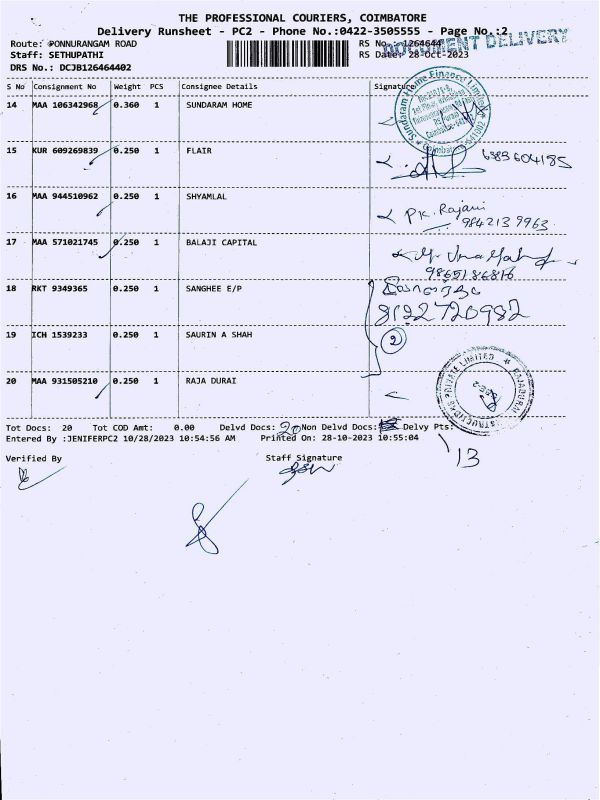 THE PROFESSIONAL COURIERS, COIMBATORE
Delivery Runsheet - PC2 - Phone No.:0422-3505555 - Page No.:2
Route: PONNURANGAM ROAD RS No.: 1264644
DOCUMENT DELIVERY
Staff: SETHUPATHI RS Date: 28-Oct-2023
DRS No.: DCJB126464402
S No Consignment No Weight PCS Consignee Details Signature
14 MAA 106342968 0.360 1 SUNDARAM HOME
Sundaram Home Finance Limited
15 KUR 609269839 0.250 1 FLAIR 6383604185
16 MAA 944510962 0.250 1 SHYAMLAL
P.K. Rajani
9842139963
17 MAA 571021745 0.250 1 BALAJI CAPITAL
9865186816
18 RKT 9349365 0.250 1 SANGHEE E/P
8122720982
19 ICH 1539233 0.250 1 SAURIN A SHAH
2
20 MAA 931505210 0.250 1 RAJA DURAI
PRIVATE LIMITED * RAJADURAI
Tot Docs: 20 Tot COD Amt: 0.00 Delvd Docs: 20 Non Delvd Docs: Delvy Pts:
13
Entered By :JENIFERPC2 10/28/2023 10:54:56 AM Printed On: 28-10-2023 10:55:04
Verified By Staff Signature